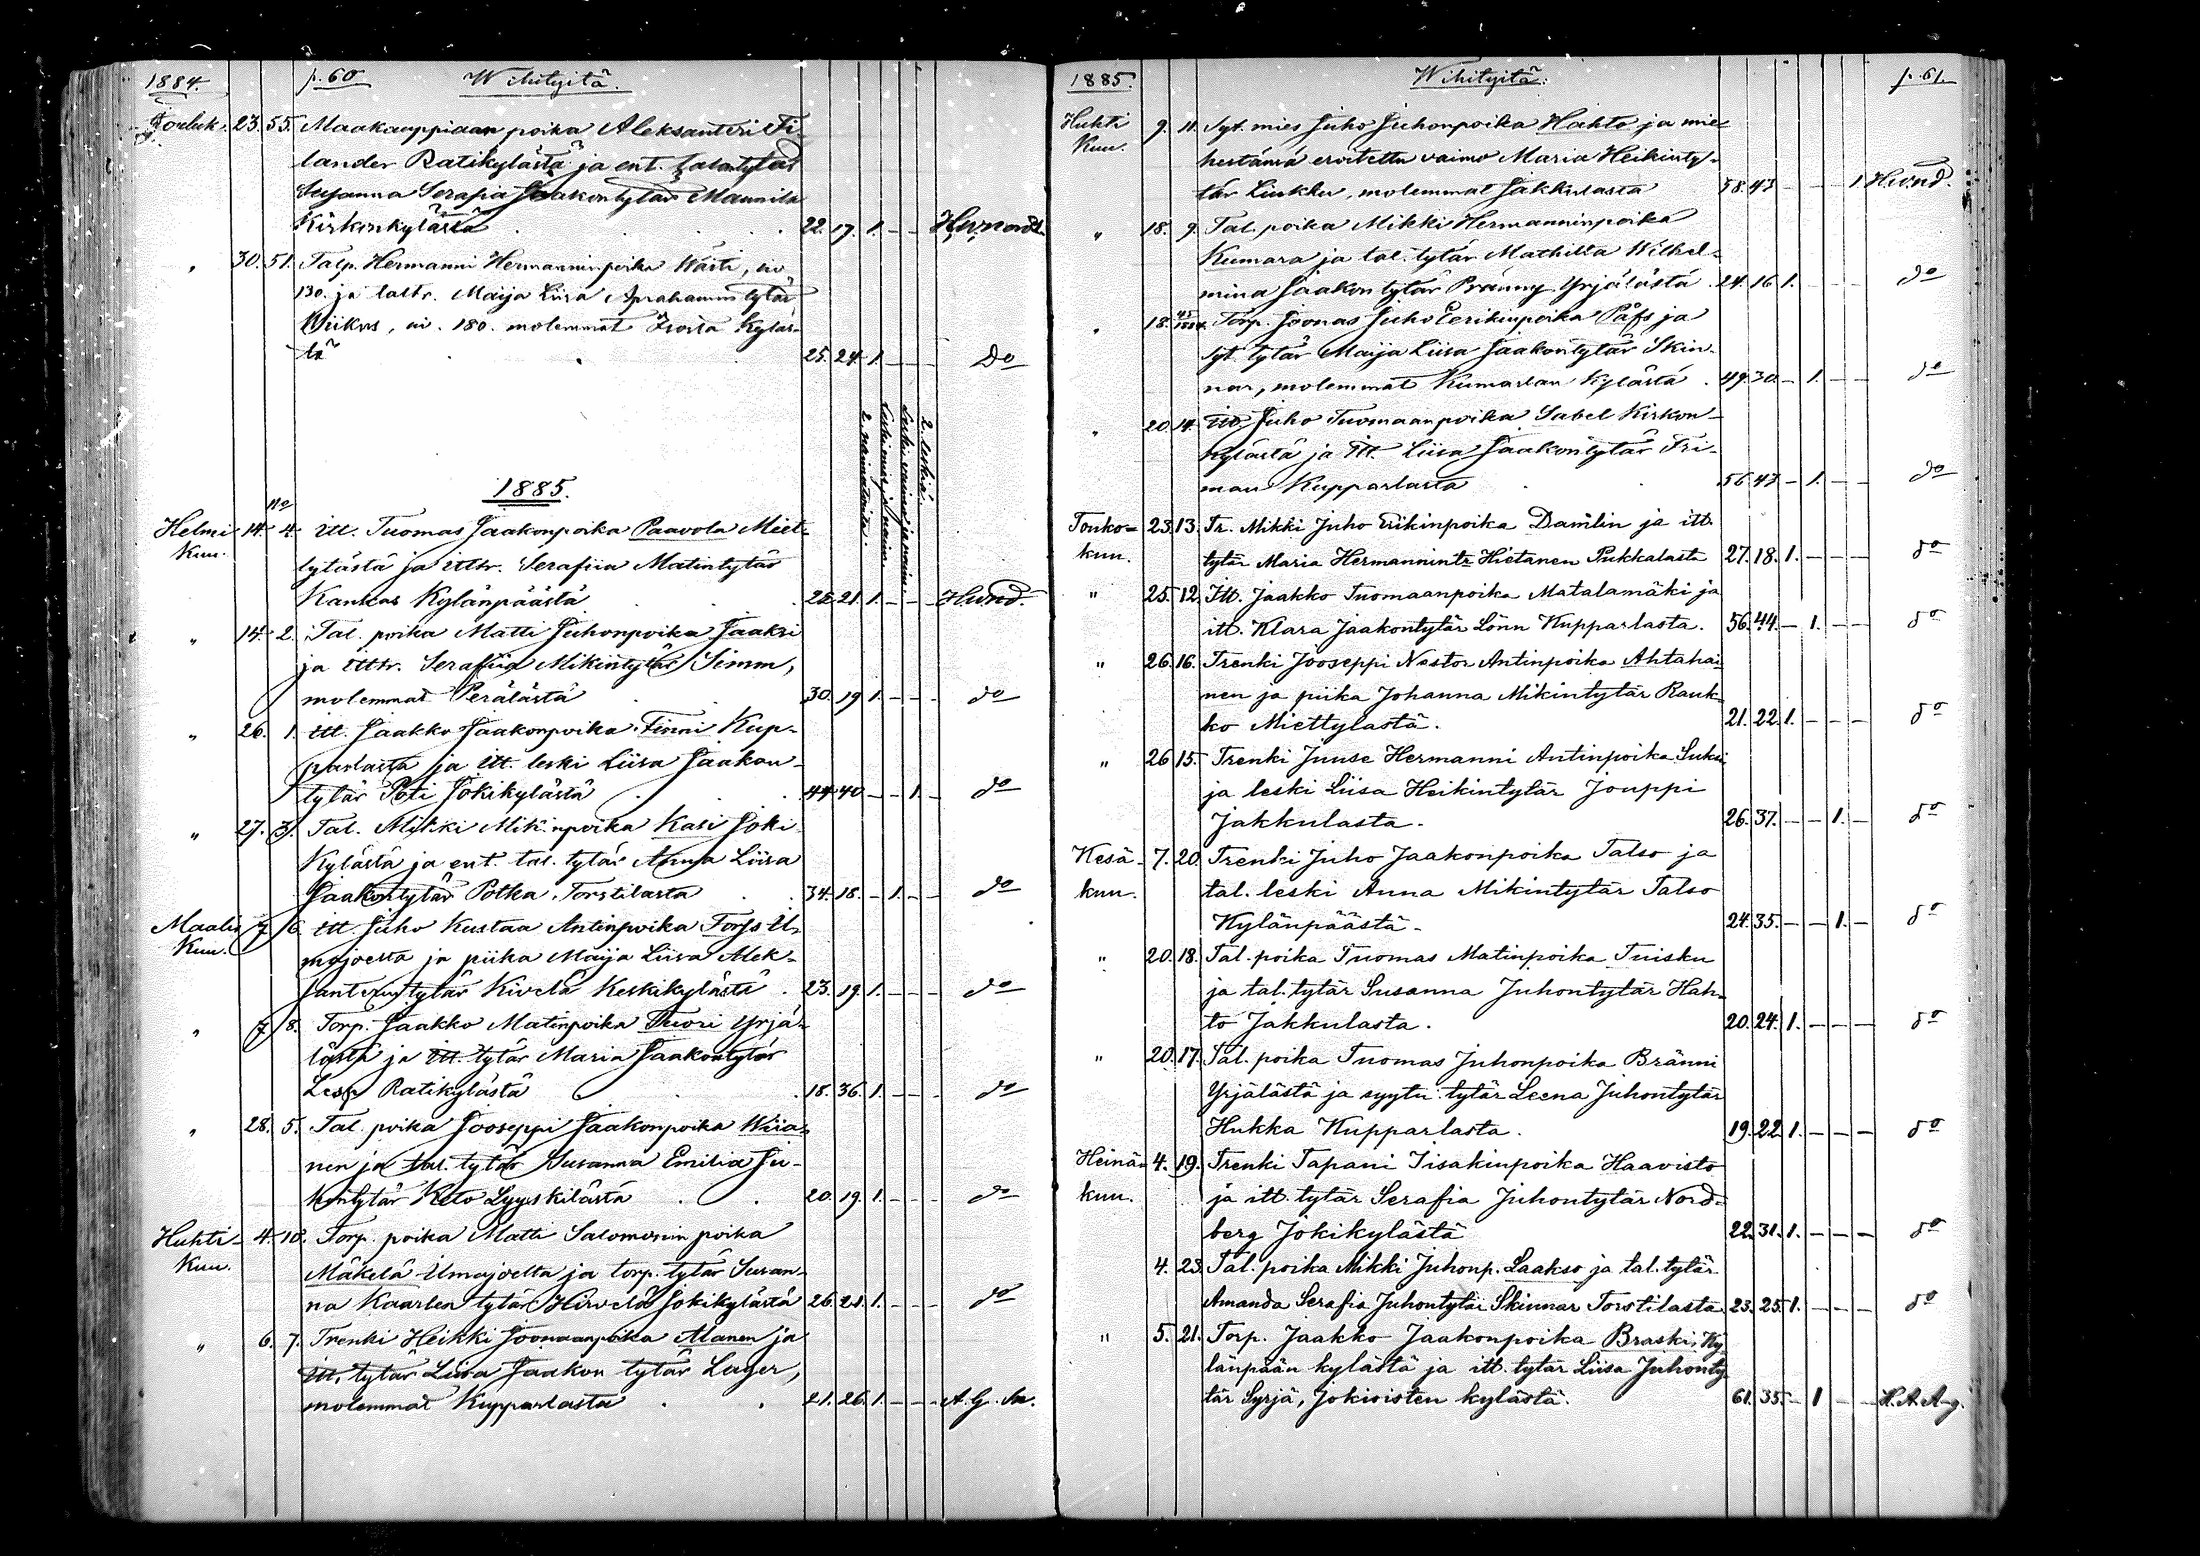 1884. p. 60 Wihityitä.
Jouluk. 23. 55. Maakauppiaan poika Aleksanteri Fi-
lander Ratikylästä ja ent. talontytär
Susanna Serafia Jaakontytär Maunila
Kirkonkylästä 22. 17. 1. – –
" 30. 51. Talp. Hermanni Hermanninpoika Wästi,
130. ja lastr. Maija Liisa Aprahamintytär
Wiikus, 180. molemmat kyläs-
tä 25. 24. 1. – – Do
2 naimatointa.
Leskimies ja vaimo
Leski vaimo ja
2 leskiä.
1885.
No
Helmi 14. 4. itt. Tuomas Jaakonpoika Paavola Miet-
Kuu. tylästä ja itttr. Serafiia Matintytär
Kankas Kylänpäästä 21. 1. – – Hwnd.
" 14. 2. Tal. poika Matti Juhonpoika Jaaksi
ja itttr. Serafiia Mikintytär Simm,
molemmat Perälästä 30. 19 1. – – do
" 26. 1. itt. Jaakko Jaakonpoika Finni Kup-
parlasta ja itt. leski Liisa Jaakon-
tytär Poti Jokikylästä 44 40 – – 1. – do
" 27. 3. Tal. Mikki Mik.npoika Kasi Joki
Kylästä ja ent. tal. tytär Anna Liisa
Jaakontytär Potka Torstilasta 34. 18. – 1. – – do
Maalis 7. 6. itt. Juho Kustaa Antinpoika Forss Il-
Kuu. majoesta ja piika Maija Liisa Alek-
santerintytär Kivelä Keskikylästä 23. 19. 1. – – – do
" 7. 8. Torp. Jaakko Matinpoika Tuori Yrjä-
lästä ja itt. tytär Maria Jaakontytär
Ratikylästä 18. 36. 1. – – – do
" 28. 5. Tal. poika Jooseppi Jaakonpoika Wiia-
nen ja tal. tytär Susanna Emilia Ju-
hontytär Keto Lyyskilästä 20. 19. 1. – – – do
Huhti- 4. 10. Torp. poika Matti Salomonin poika
Kuu. Mäkelä Ilmajoelta ja torp. tytär Susan-
na Kaarlen tytär Hirvelä Jokikylästä 26. 21. 1. – – – do
" 6. 7. Trenki Heikki Joonaanpoika Alanen ja
itt. tytär Liisa Jaakon tytär Lager,
molemmat Kupparlasta 21. 26. 1. – – –
1885. Wihityitä. p. 61.
Huhti 9. 11. Syt. mies Juho Juhonpoika Hahto ja mie-
Kuu. hestänsä eroitettu vaimo Maria Heikinty-
tär Liukku, molemmat Jakkulasta 58. 43 – – – 1 Hwnd.
" 18. 9. Tal. poika Mikki Hermanninpoika
Kumara ja tal. tytär Mathilda Wilhel-
mina Jaakontytär Pränny Yrjälästä 24. 16 1. – – – do
" 18. Torp. Joonas Juho Eerikinpoika Påfs ja
syt. tytär Maija Liisa Jaakontytär Skin-
nar, molemmat Kumarlan Kylästä 49. 30. – 1. – – do
" 20. 14. itt. Juho Tuomaanpoika Sabel Kirkon-
kylästä ja itt. Liisa Jaakontytär Fri-
man Kupparlasta 56 47 – 1. – – do
Touko= 23. 13. Tr. Mikki Juho Erikinpoika Damlin ja itt.
kuu. tytär Maria Hermannintr Hietanen Pukkalasta 27. 18. 1. – – – do
" 25. 12. Itt. Jaakko Tuomaanpoika Matalamäki ja
itt. Klara Jaakontytär Lönn Kupparlasta. 56. 44. – 1. – – do
" 26. 16. Trenki Jooseppi Nestor Antinpoika Ahtahai-
nen ja piika Johanna Mikintytär Rauk-
ko Miettylästä. 21. 22. 1. – – – do
" 26 15. Trenki Juuse Hermanni Antinpoika Suksi
ja leski Liisa Heikintytär Jouppi
Jakkulasta. 26. 37. – – 1. – do
Kesä- 7. 20. Trenki Juho Jaakonpoika Talso ja
kuu. tal. leski Anna Mikintytär Talso
Kylänpäästä. 24. 35. – – 1. – do
" 20. 18. Tal. poika Tuomas Matinpoika Tuisku
ja tal. tytär Susanna Juhontytär Hah-
to Jakkulasta. 20. 24. 1. – – – do
" 20. 17. Tal. poika Tuomas Juhonpoika Bränni
Yrjälästä ja syytti. tytär Leena Juhontytär
Hukka Kupparlasta. 19. 22 1. – – – do
Heinä= 4. 19. Trenki Tapani Iisakinpoika Haavisto
kuu. ja itt. tytär Serafia Juhontytär Nord-
berg Jokikylästä 22. 31. 1. – – – do
4. 23. Tal. poika Mikki Juhonp. Laakso ja tal. tytär
Amanda Serafia Juhontytär Skinnar Torstilasta 23. 25. 1. – – – do
" 5. 21. Torp. Jaakko Jaakonpoika Braski, Ky-
länpään kylästä ja itt. tytär Liisa Juhonty-
tär Syrjä, Jokioisten kylästä. 61. 35. – 1 – –